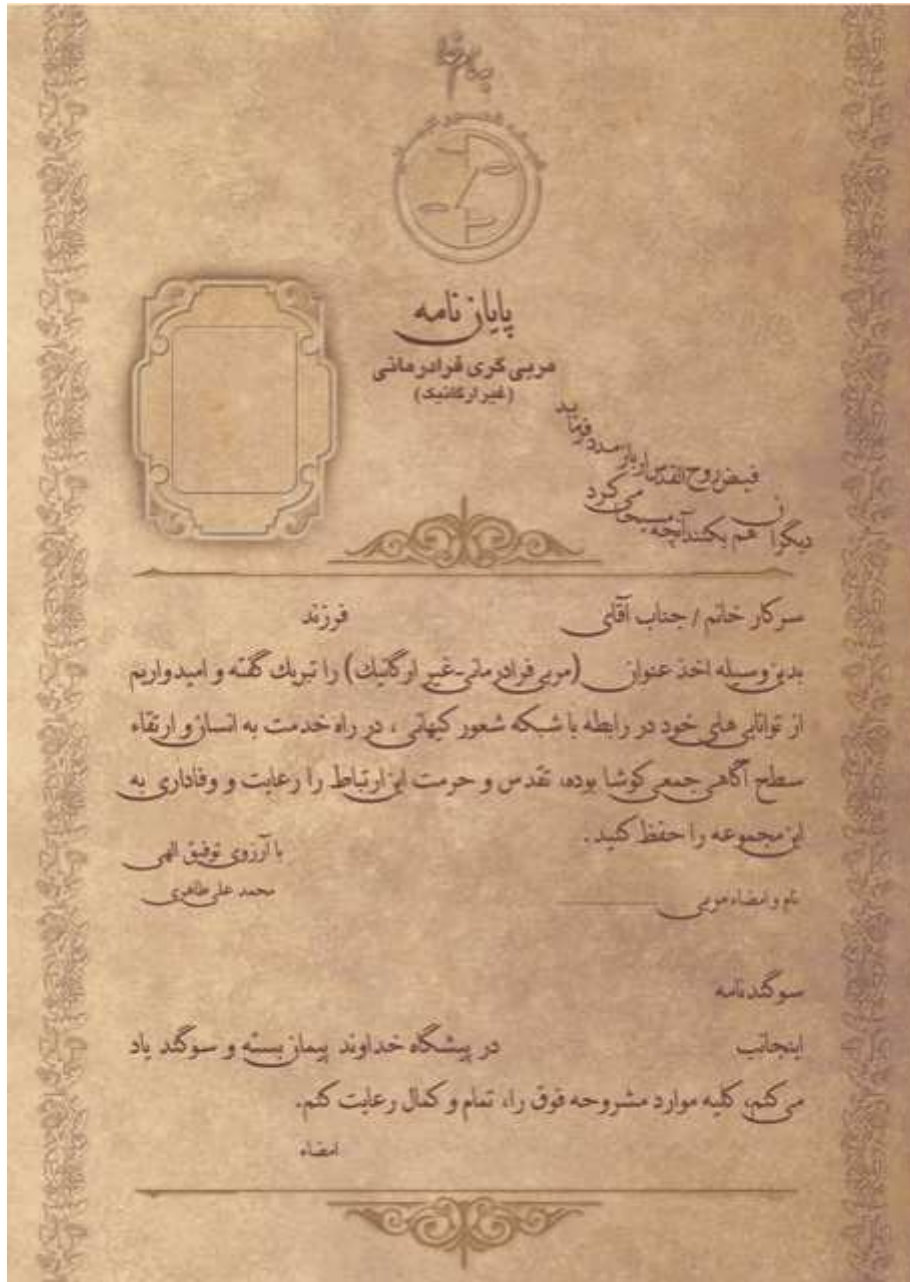 به نام خدا
پایان نامه
مربی گری فرادرمانی
(غیر ارگانیک)
فیض روح القدس ار باز مدد فرماید
دیگران هم بکنند آنچه مسیحا می کرد
سرکار خانم / جناب آقای فرزند
بدین وسیله اخذ عنوان (مربی فرادرمانی-غیر ارگانیك) را تبریك گفته و امیدواریم
از توانایی های خود در رابطه با شبکه شعور کیهانی، در راه خدمت به انسان و ارتقاء
سطح آگاهی جمعی کوشا بوده، تقدس و حرمت این ارتباط را رعایت و وفاداری به
این مجموعه را حفظ کنید.
با آرزوی توفیق الهی
محمد علی طاهری
نام و امضاء مربی
سوگندنامه
اینجانب در پیشگاه خداوند پیمان بسته و سوگند یاد
می کنم، کلیه موارد مشروحه فوق را، تمام و کمال رعایت کنم.
امضاء